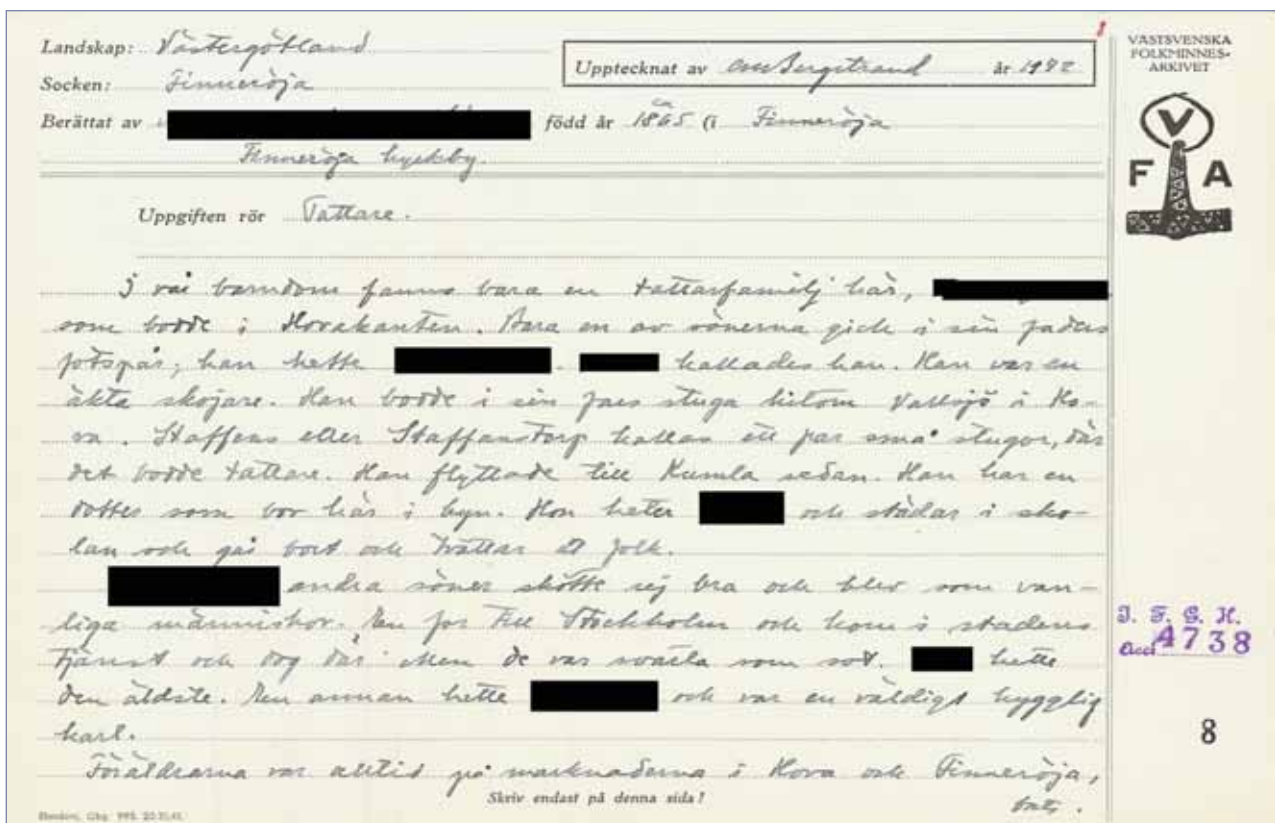 Landskap: Västergötland
Socken: Finneröja
Upptecknat av CM Bergstrand år 1942
Berättat av
född år ca 1865 (i Finneröja
Finneröja kyrkby.
Uppgiften rör Tattare.
I vår barndom fanns bara en tattarfamilj här,
som bodde i Hovakanten. Bara en av sönerna gick i sin faders
fotspår; han hette . kallades han. Han var en
äkta skojare. Han bodde i sin fars stuga hitom Vallsjö i Ho-
va. Staffens eller Staffanstorp kallas ett par små stugor, där
det bodde tattare. Han flyttade till Kumla sedan. Han har en
dotter som bor här i byn. Hon heter och städar i sko-
lan och går bort och tvättar åt folk.
andra söner skötte sej bra och blev som van-
liga människor. En for till Stockholm och kom i stadens
tjänst och dog där. Men de var svarta som sot. hette
den äldste. En annan hette och var en väldigt hygglig
karl.
Föräldrarna var alltid på marknaderna i Hova och Finneröja,
Skriv endast på denna sida!
VÄSTSVENSKA
FOLKMINNES-
ARKIVET
V
F A
I. F. G. H.
Acc. 4738
8